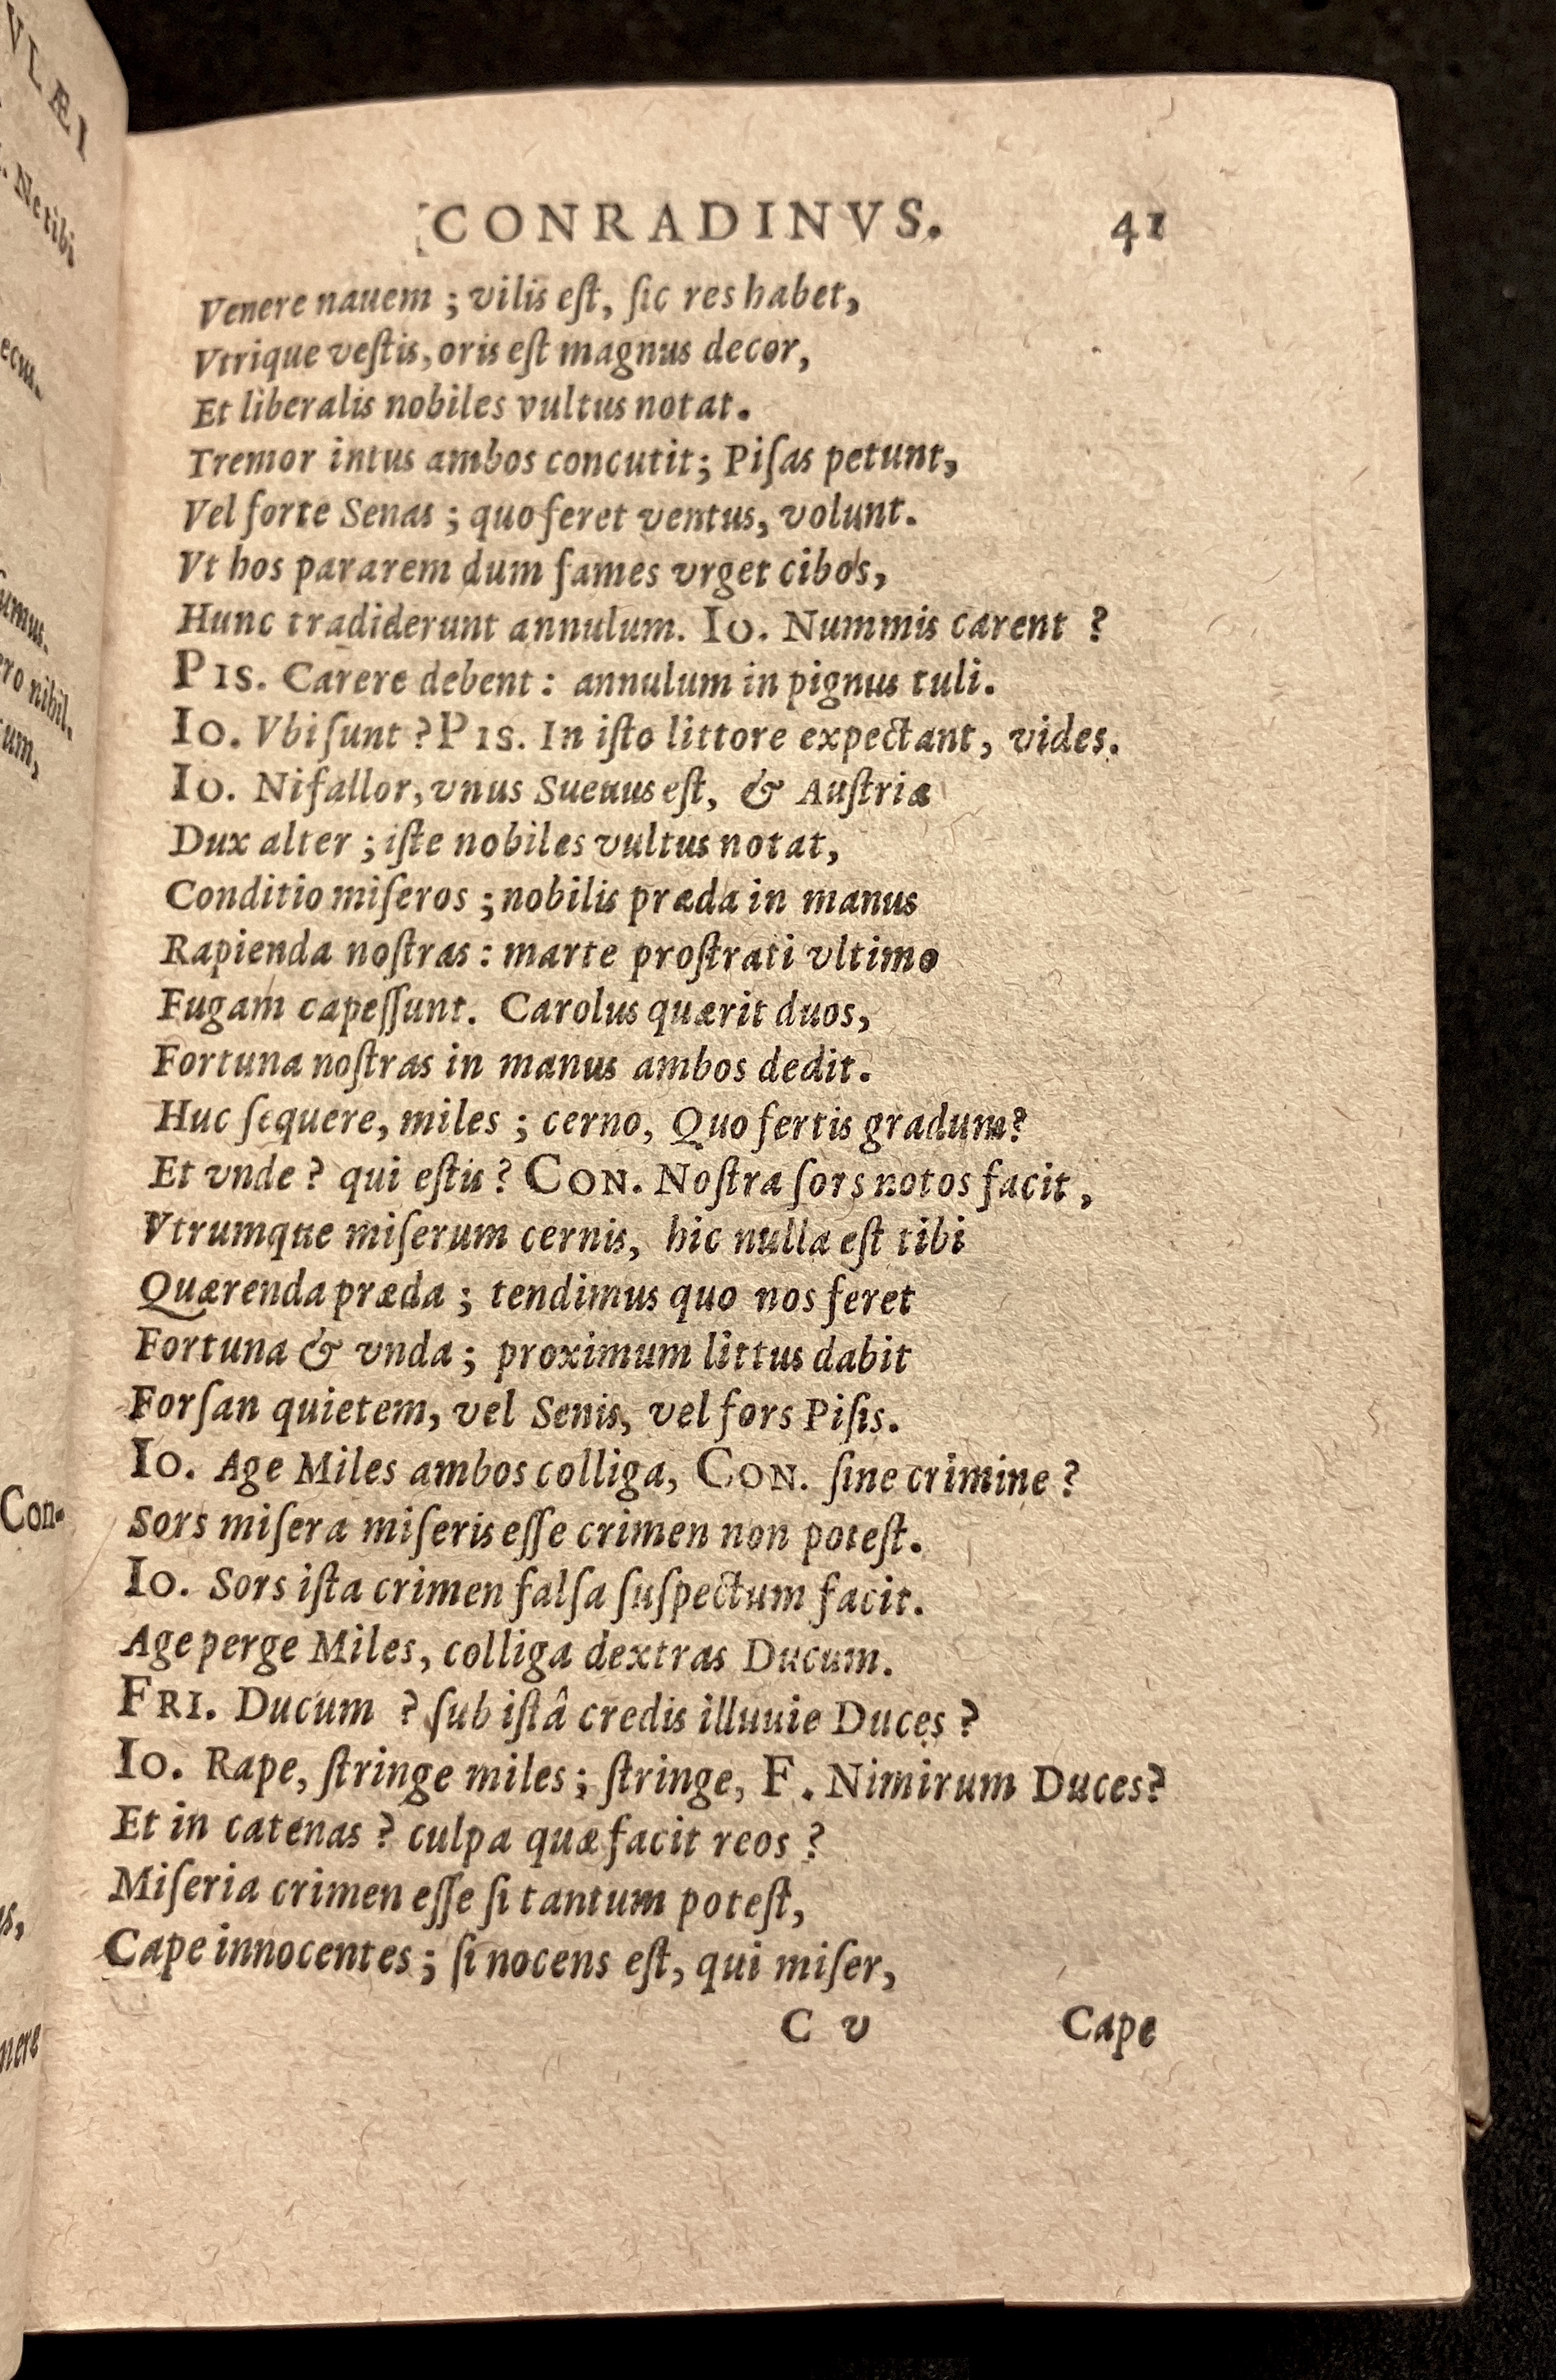 VLÆI
Ne tibi
ecum.
umus.
ro nihil.
um,
Con-
us,
nere
CONRADINVS. 41
Venere nauem ; vilis eſt, ſic res habet,
Vtrique veſtis, oris eſt magnus decor,
Et liberalis nobiles vultus notat.
Tremor intus ambos concutit; Piſas petunt,
Vel forte Senas ; quo feret ventus, volunt.
Vt hos pararem dum fames vrget cibos,
Hunc tradiderunt annulum. Io. Nummis carent ?
Pis. Carere debent : annulum in pignus tuli.
Io. Vbi ſunt ? Pis. In iſto littore expectant, vides.
Io. Ni fallor, vnus Sueuus eſt, & Auſtriæ
Dux alter ; iſte nobiles vultus notat,
Conditio miſeros ; nobilis præda in manus
Rapienda noſtras : marte proſtrati vltimo
Fugam capeſſunt. Carolus quærit duos,
Fortuna noſtras in manus ambos dedit.
Huc ſequere, miles ; cerno, Quo fertis gradum?
Et vnde ? qui eſtis ? Con. Noſtra ſors notos facit ,
Vtrumque miſerum cernis, hic nulla eſt tibi
Quærenda præda ; tendimus quo nos feret
Fortuna & vnda ; proximum littus dabit
Forſan quietem, vel Senis, vel fors Piſis.
Io. Age Miles ambos colliga, Con. ſine crimine ?
Sors miſera miſeris eſſe crimen non poteſt.
Io. Sors iſta crimen falſa ſuſpectum facit.
Age perge Miles, colliga dextras Ducum.
Fri. Ducum ? ſub iſtâ credis illuuie Duces ?
Io. Rape, ſtringe miles ; ſtringe, F. Nimirum Duces?
Et in catenas ? culpa quæ facit reos ?
Miſeria crimen eſſe ſi tantum poteſt,
Cape innocentes ; ſi nocens eſt, qui miſer,
C v Cape